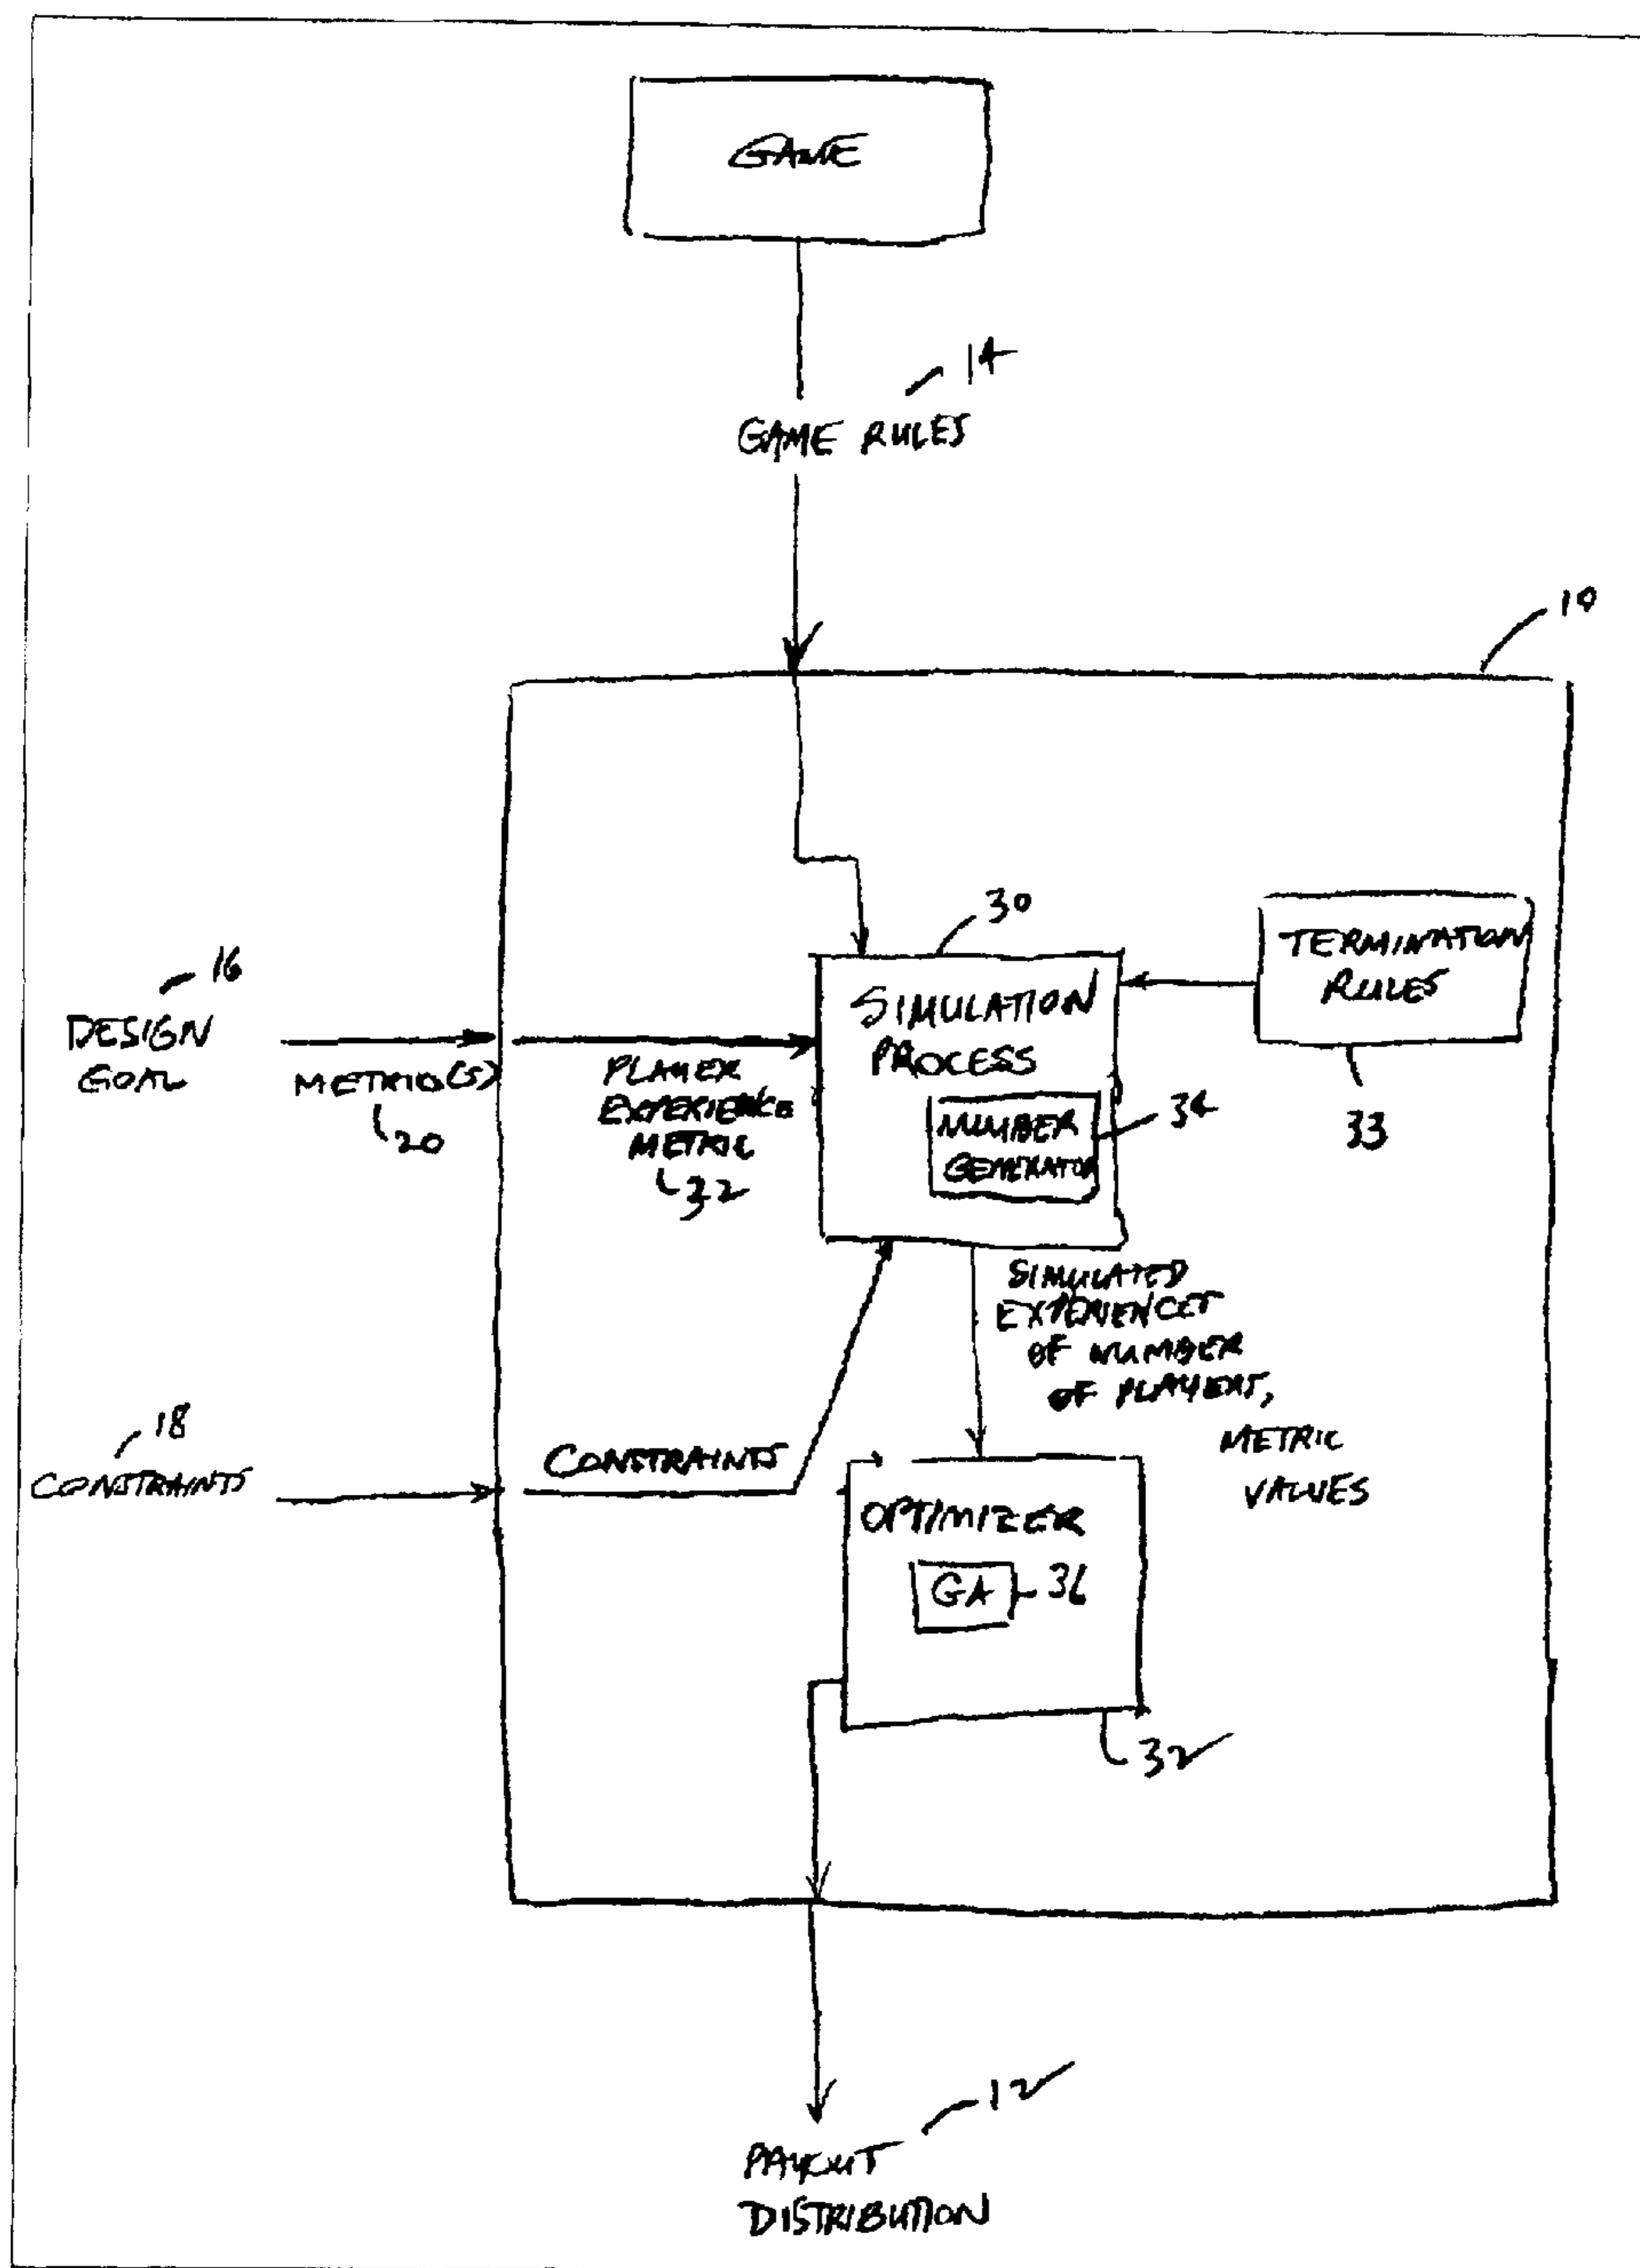 GAME
14
GAME RULES
10
30
TERMINATION
RULES
33
16
DESIGN
GOAL
METRIC(S)
20
PLAYER
EXPERIENCE
METRIC
32
SIMULATION
PROCESS
NUMBER
GENERATOR
34
SIMULATED
EXPERIENCES
OF NUMBER
OF PLAYERS,
METRIC
VALUES
18
CONSTRAINTS
CONSTRAINTS
OPTIMIZER
GA
36
32
12
PAYOUT
DISTRIBUTION